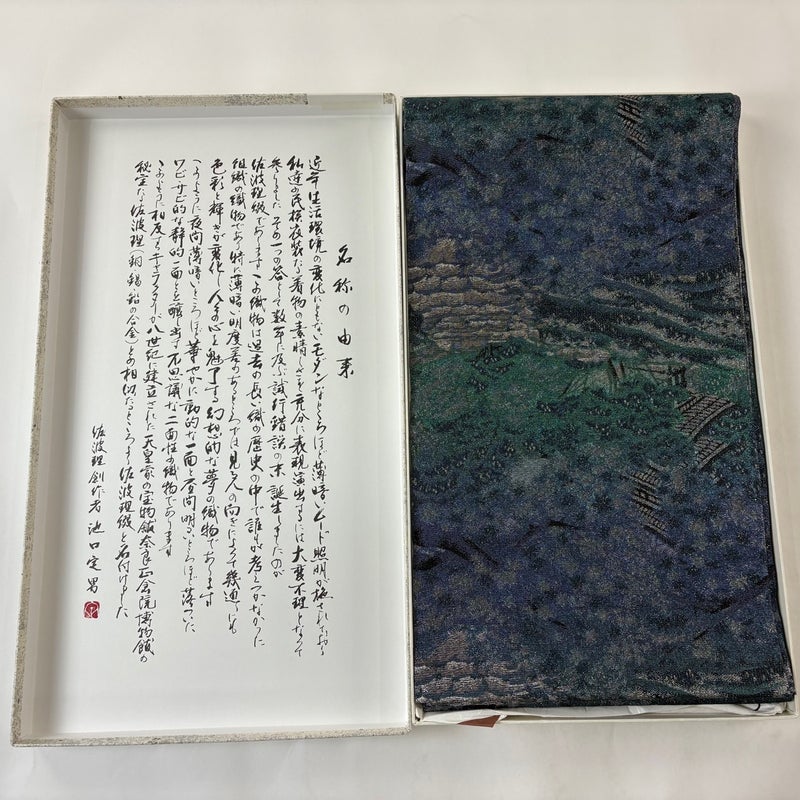 名称の由来
近年生活環境の変化にともないモダンなところほど薄暗いムード照明が施され
私達の民族衣装たる着物の素晴しさを充分に表現演出するには大変不理となって
参りました その一つの答として数年に及ぶ試行錯誤の末誕生しましたのが
佐波理綴であります この織物は過去の長い織の歴史の中で誰もが考えつかなかった
組織の織物であり特に薄暗い明度差のあるところでは見る人の向きによって幾通りにも
色彩と輝きが変化し人々の心を魅了する幻想的な夢の織物であります
このように夜間薄暗いところほど華やかに動的な一面と昼間明るいところほど落ついた
ワビ、サビ的な静的一面とを醸し出す不思議な二面性の織物であります
このように相反するキャラクターが八世紀に建立された天皇家の宝物館奈良正倉院博物館の
秘宝たる佐波理(銅錫鉛の合金)との相似たるところより佐波理綴と名付けました
佐波理創作者 池口定男